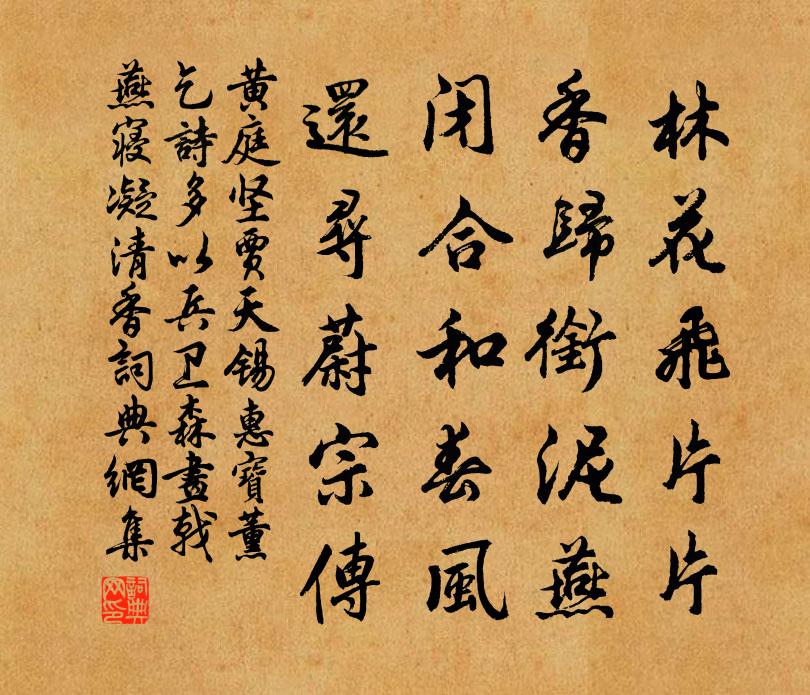 林花飛片片
香歸銜泥燕
闭合和春風
還尋蔚宗傳
黃庭坚賈天錫惠寶薰
乞詩多以兵卫森畫戟
燕寢凝清香詞典網集
詞典網印